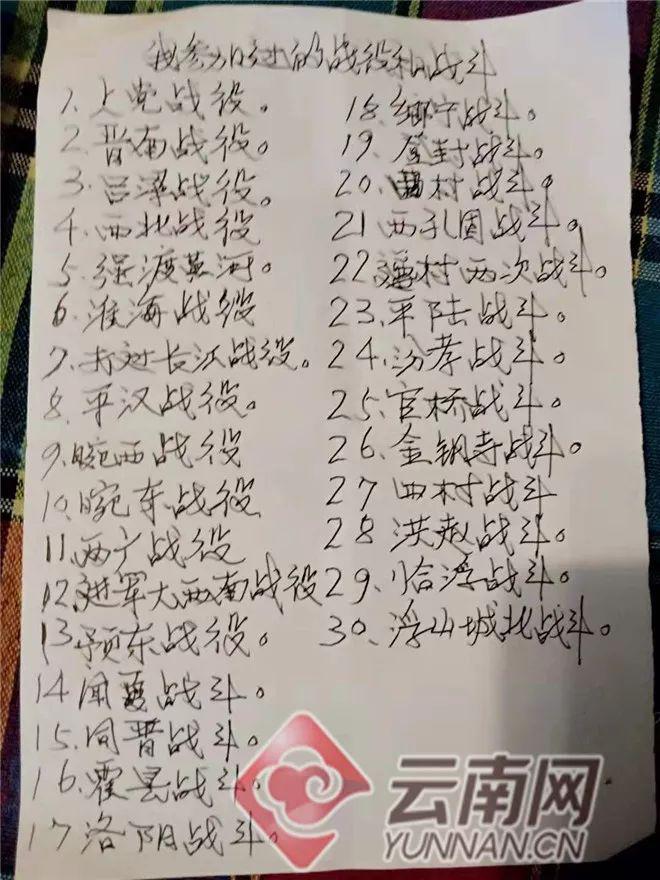 我参加过的战役和战斗
1、上党战役。
2、晋南战役。
3、吕梁战役。
4、西北战役
5、强渡黄河。
6、淮海战役
7、打过长江战役。
8、平汉战役。
9、皖西战役
10、皖东战役
11、两广战役
12、进军大西南战役
13、予东战役。
14闻夏战斗。
15、同晋战斗。
16、霍县战斗。
17洛阳战斗。
18、乡宁战斗。
19、登封战斗。
20、曲村战斗。
21、两孔固战斗。
22村两次战斗。
23、平陆战斗。
24、汾孝战斗。
25、官桥战斗。
26、金钢寺战斗。
27西村战斗
28洪赵战斗。
29、临浮战斗。
30、浮山城北战斗。
云南网
YUNNAN.CN